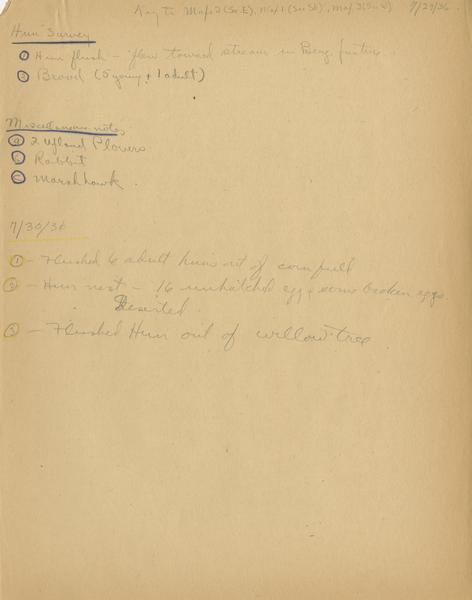 Key to Map 2 (Sec E), Map 1 (Sec SE), Map 3 (Sec 7/29/36
Hun Survey
1 Hun flush - flew toward stream in Berg. pasture
2 Brood (5 young + 1 adult)
Miscellaneous notes
a 2 Upland Plovers
b Rabbit
c Marsh hawk
7/30/36
1 - Flushed 6 adult huns out of cornfield
2 - Hun nest - 16 unhatched eggs + some broken eggs
Deserted
3 - Flushed Hun out of willow tree